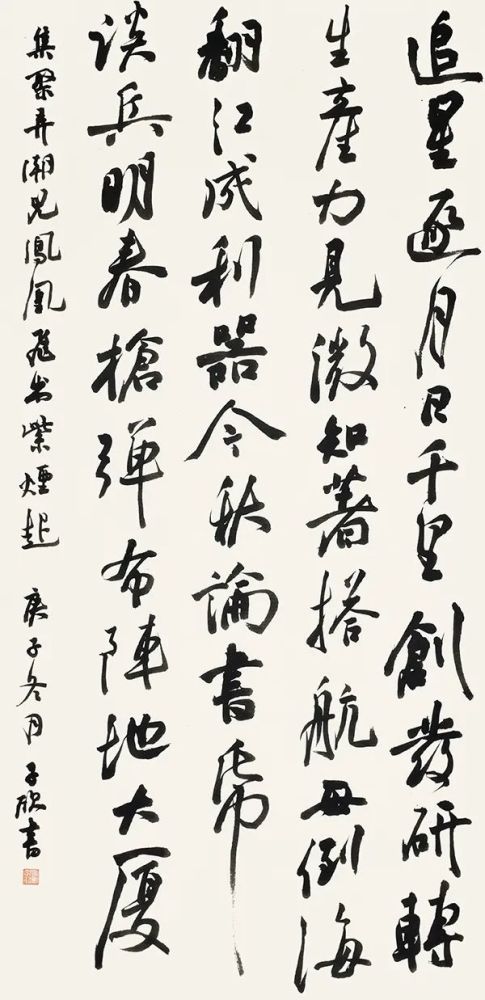 追星逐月日千里創發研轉
生產力見微知著搭航母倒海
翻江成利器今秋論書帛
談兵明春槍彈布陣地大厦
集聚弄潮兒鳳凰飛出紫煙起
庚子冬月 子欣書